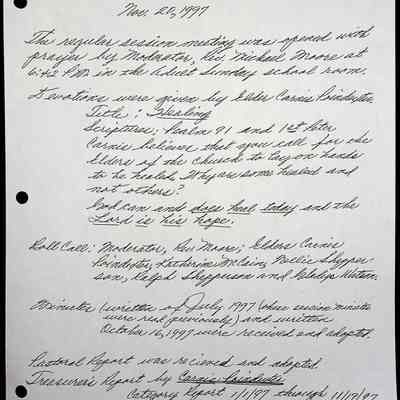 Nov. 20, 1997
The regular session meeting was opened with
prayer by Moderator, Rev. Michael Moore at
6:42 P.M. in the Adult Sunday school room.
Devotions were given by Elder Carnis Poindexter.
Title: Healing
Scripture: Psalm 91 and 1st Peter
Carnis believes that you call for the
Elders of the church to lay on hands
to be healed. Why are some healed and
not others?
God can and does heal today and the
Lord is his hope.
Roll Call: Moderator, Rev Moore; Elders Carnis
Poindexter, Katherine McCain, Nellie Shepper-
son, Shepperson and Gladys Watson.
Minutes (written of July 1997 (whose session minutes
were read previously) and written
October 16, 1997 were received and adopted.
Pastoral Report was recieved and adopted
Treasurer's Report by Carnis Poindexter
Category Report 1/1/97 through 11/17/97